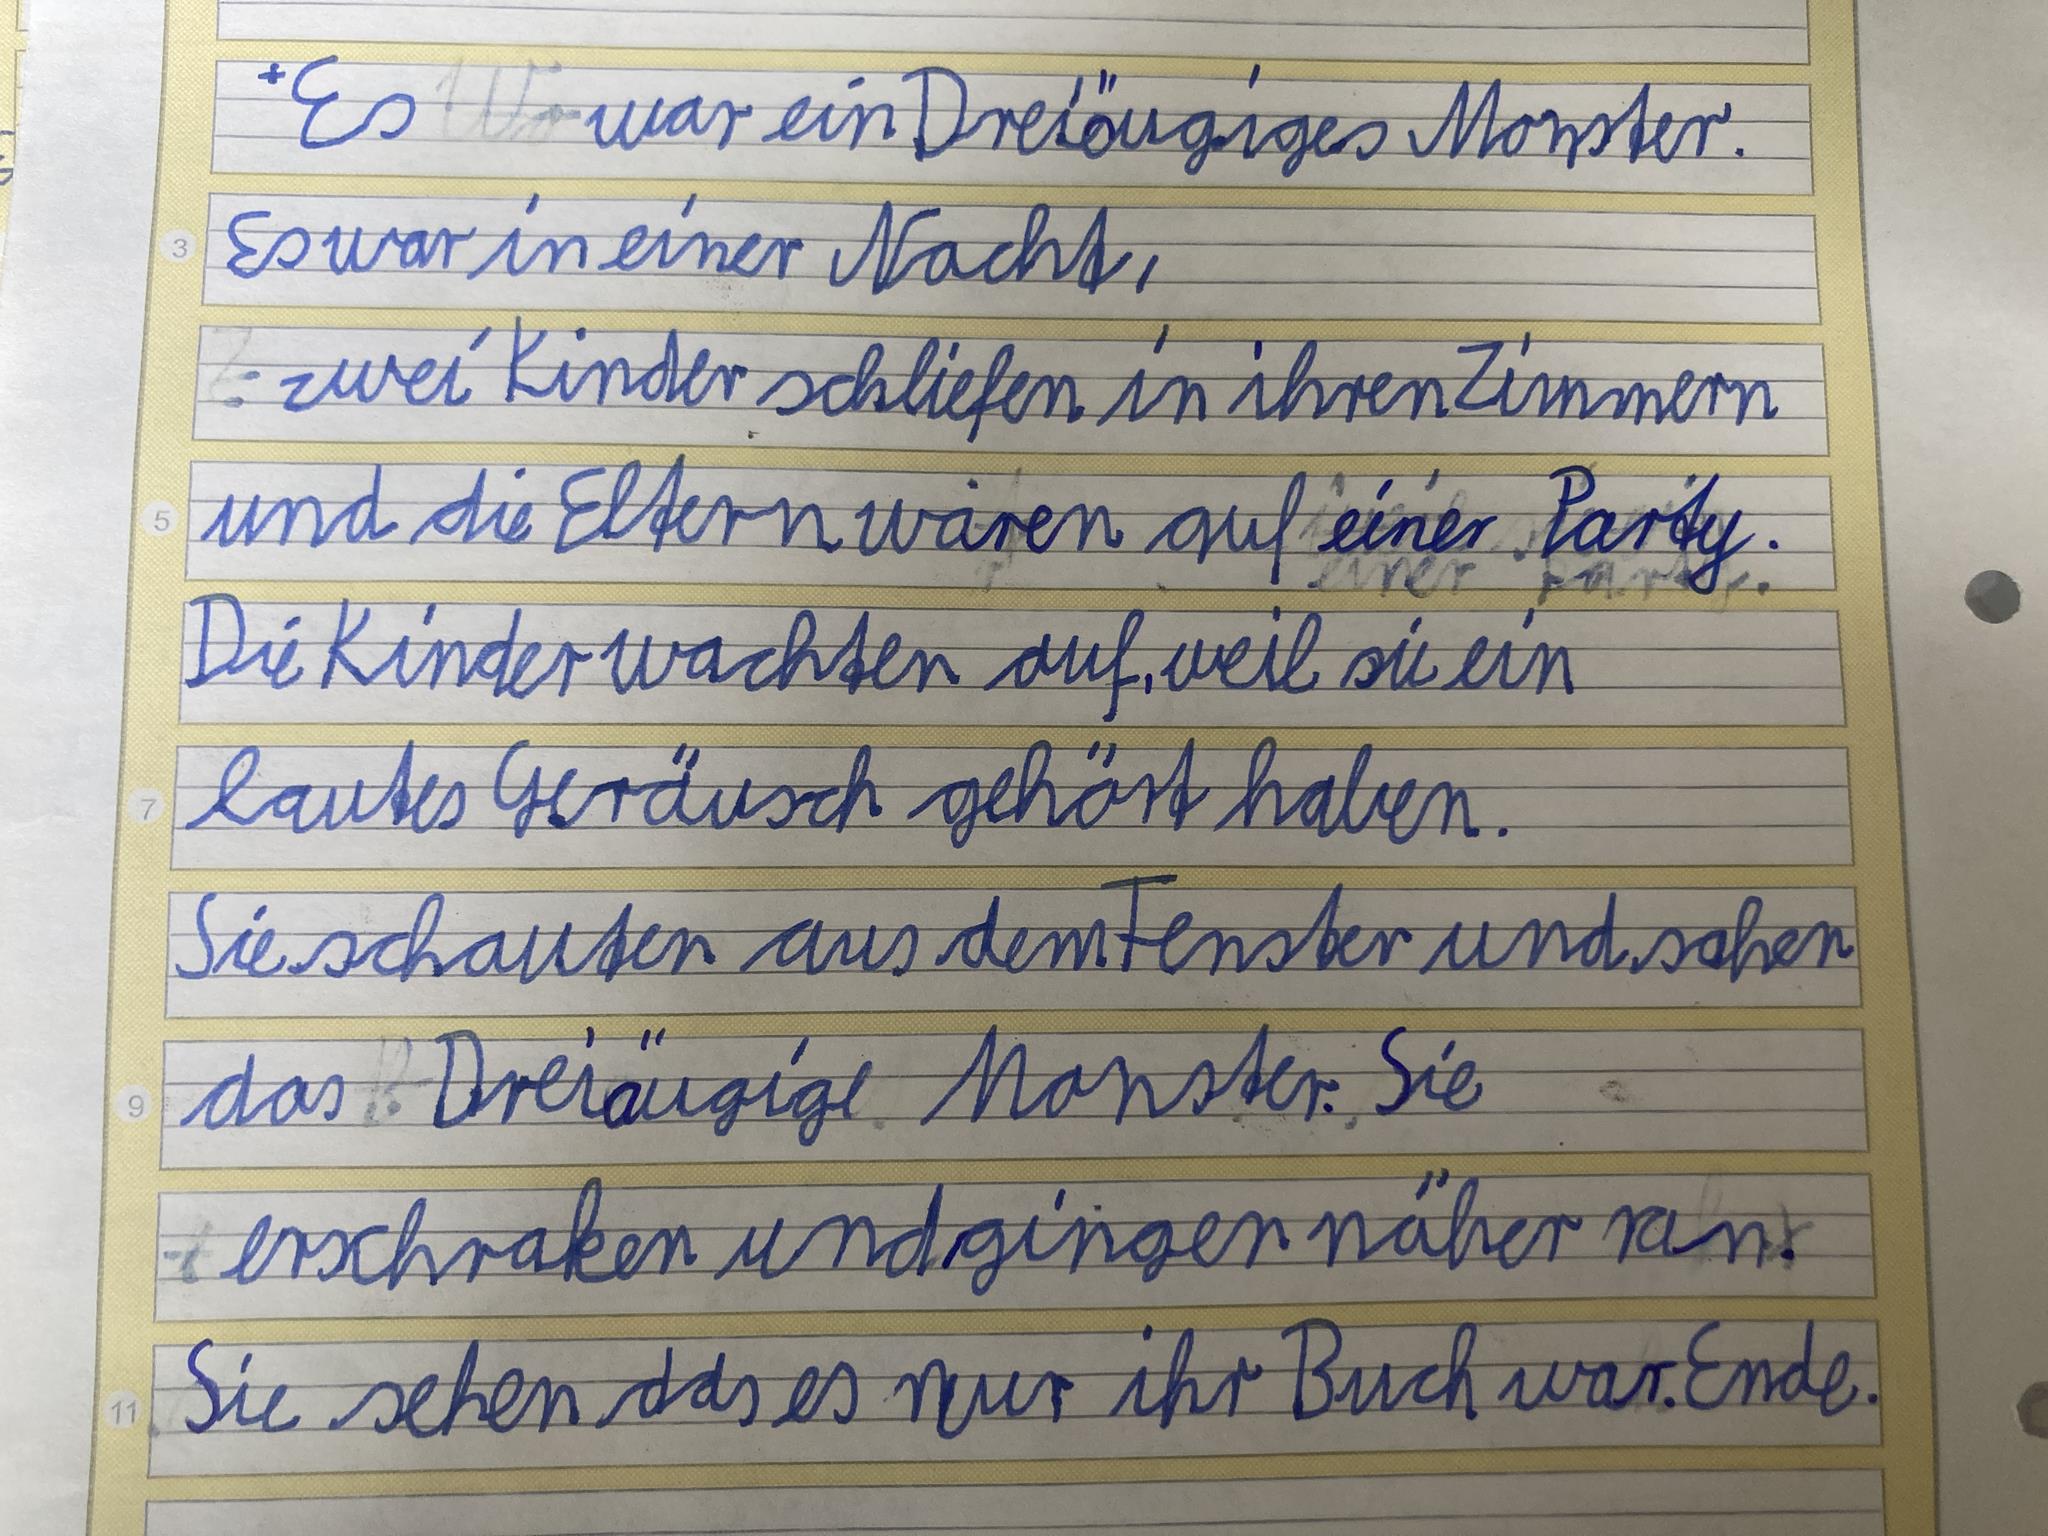 +Es war ein Dreiäugiges Monster.
3 Es war in einer Nacht,
zwei Kinder schliefen in ihren Zimmern
5 und die Eltern waren auf einer Party.
Die Kinder wachten auf, weil sie ein
7 lautes Geräusch gehört haben.
Sie schauten aus dem Fenster und sahen
9 das Dreiäugige Monster. Sie
erschraken und gingen näher ran.
11 Sie sehen das es nur ihr Buch war. Ende.